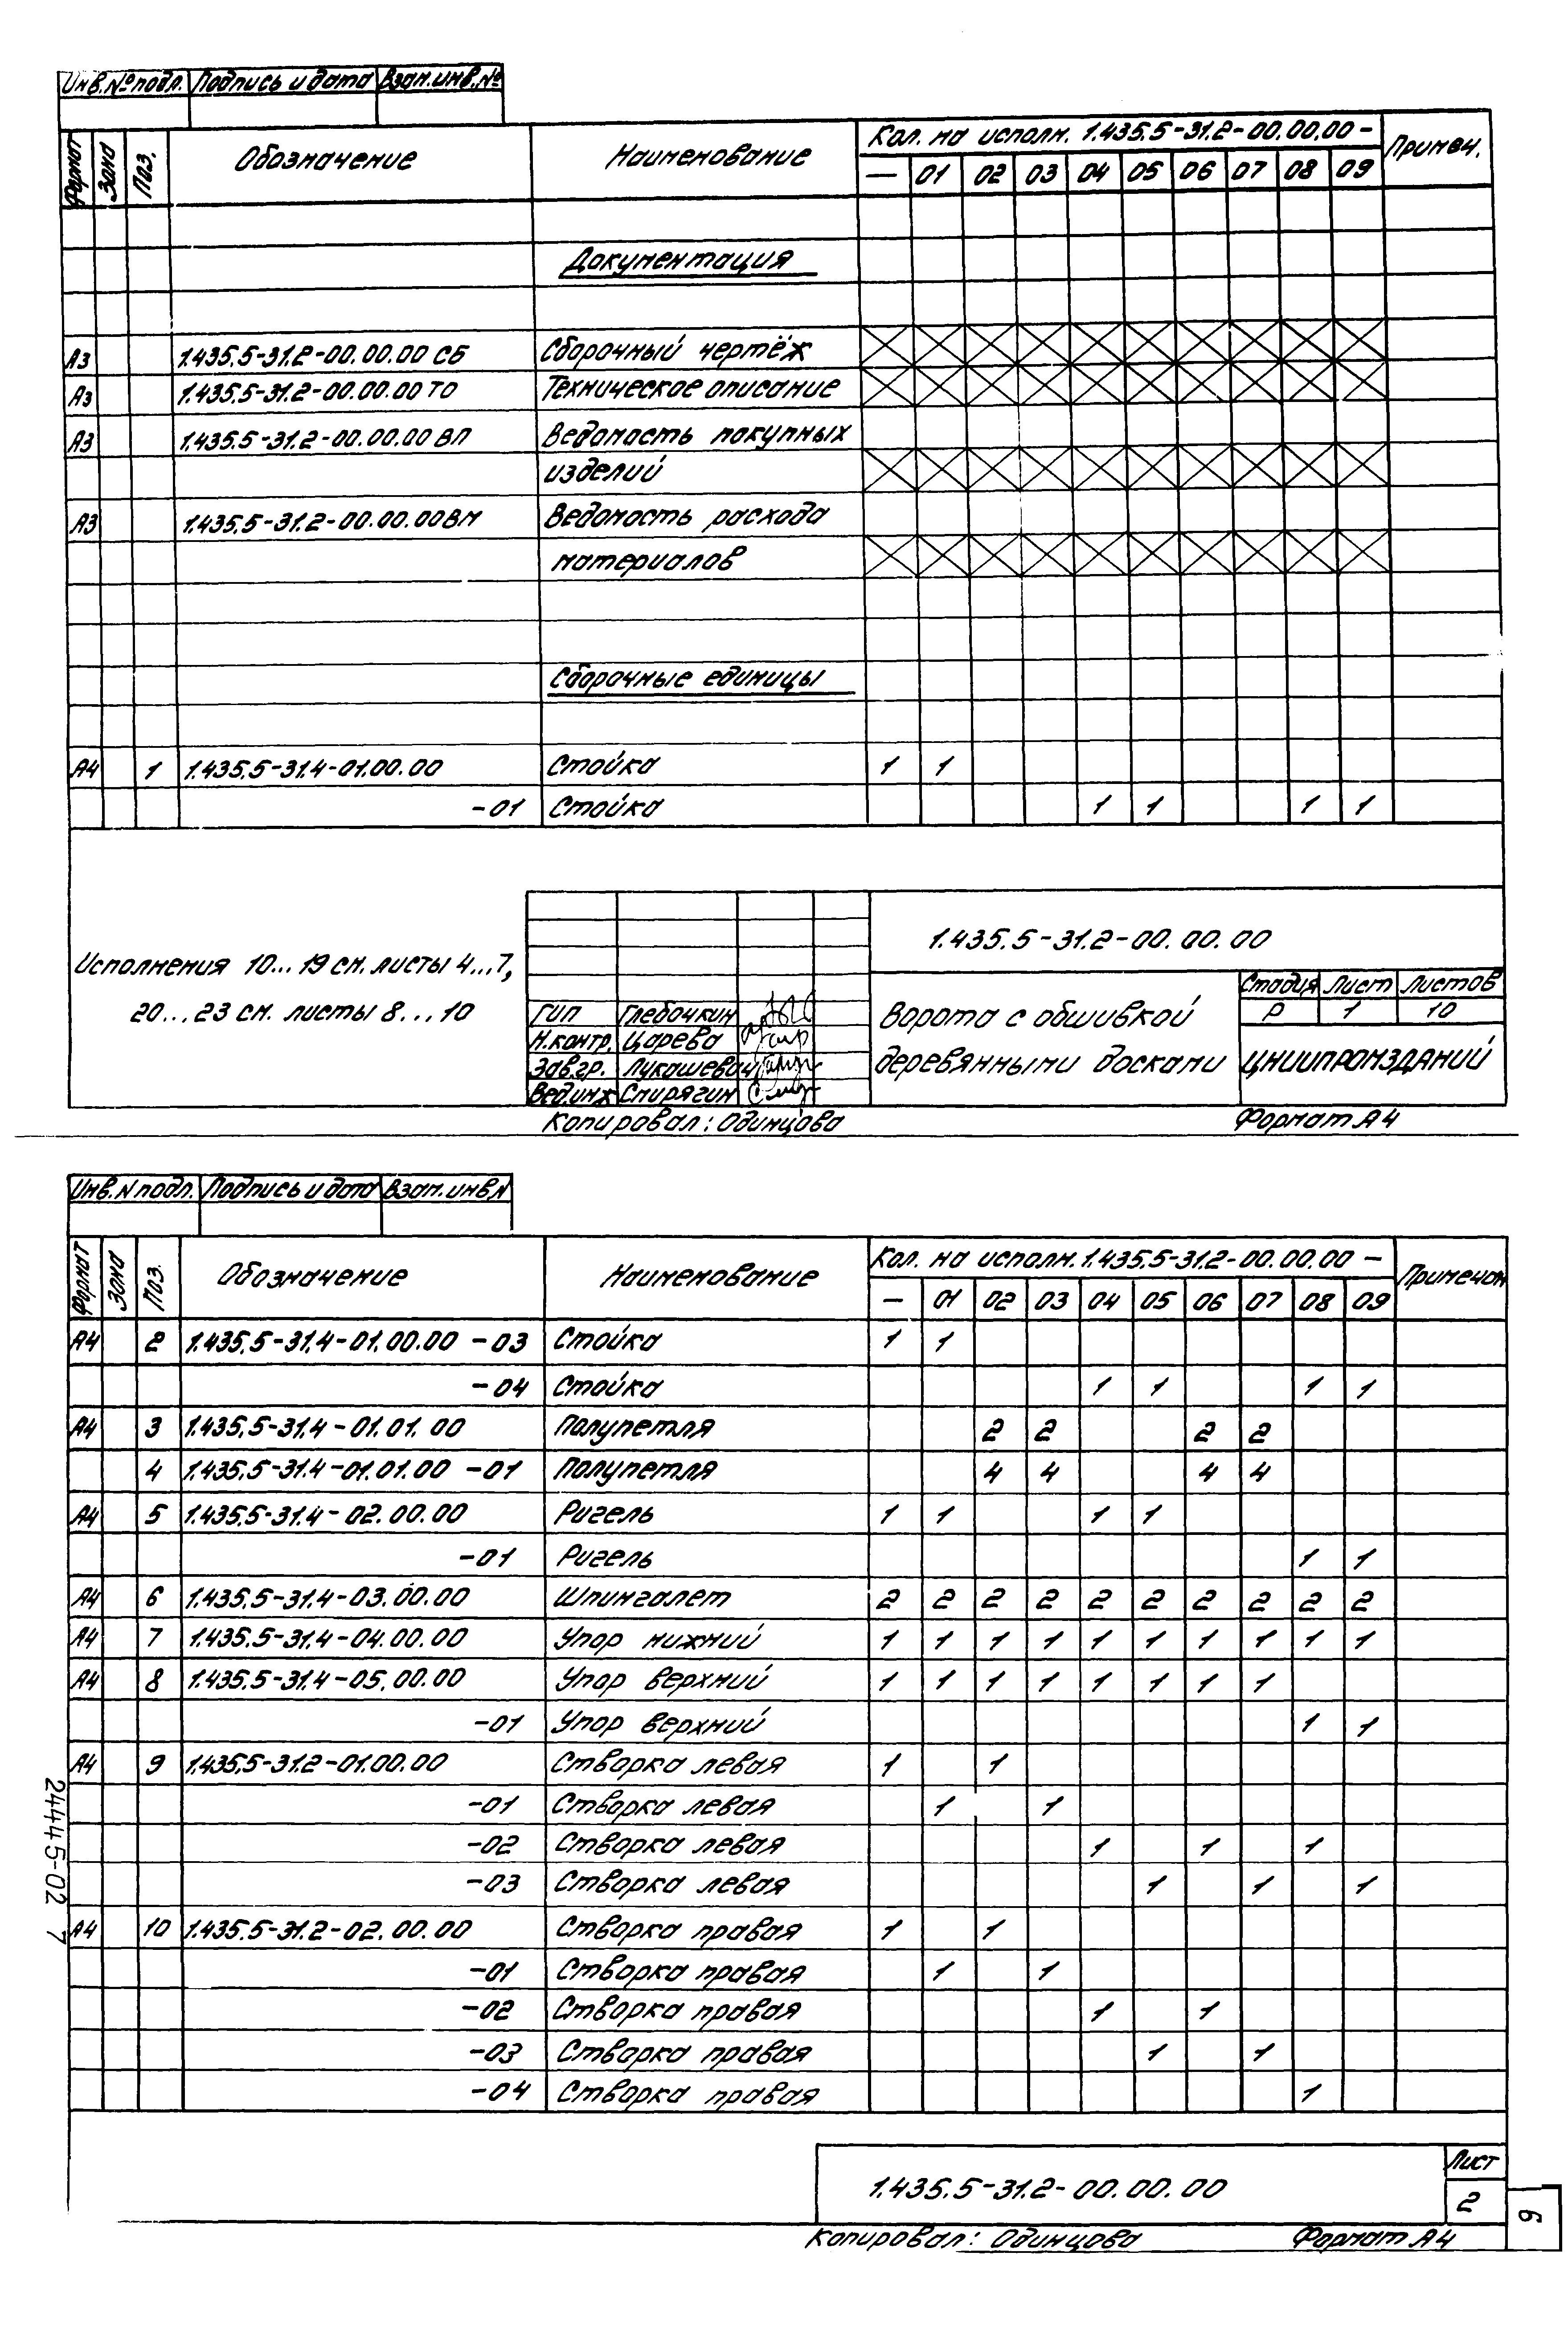 Инв.№ подл. Подпись и дата Взам.инв.№
Формат Зона Поз. Обозначение Наименование Кол. на исполн. 1.435.5-31.2-00.00.00- Примеч.
— 01 02 03 04 05 06 07 08 09
Документация
А3 1.435.5-31.2-00.00.00 СБ Сборочный чертёж
А3 1.435.5-31.2-00.00.00 ТО Техническое описание
А3 1.435.5-31.2-00.00.00 ВП Ведомость покупных
изделий
А3 1.435.5-31.2-00.00.00 ВМ Ведомость расхода
материалов
Сборочные единицы
А4 1 1.435.5-31.4-01.00.00 Стойка 1 1
-01 Стойка 1 1 1 1
Исполнения 10...19 см. листы 4...7,
20...23 см. листы 8...10
1.435.5-31.2-00.00.00
ГИП Глебочкин
Н.контр. Царева
Зав.гр. Лукашевич
Вед.инж Спирягин
Ворота с обшивкой
деревянными досками
Стадия Лист Листов
Р 1 10
ЦНИИПРОМЗДАНИЙ
Копировал: Одинцова Формат А4
Инв.N подл. Подпись и дата Взам.инв.N
Формат Зона Поз. Обозначение Наименование Кол. на исполн. 1.435.5-31.2-00.00.00 — Примечан
— 01 02 03 04 05 06 07 08 09
А4 2 1.435.5-31.4-01.00.00 -03 Стойка 1 1
-04 Стойка 1 1 1 1
А4 3 1.435.5-31.4-01.01.00 Полупетля 2 2 2 2
4 1.435.5-31.4-01.01.00 -01 Полупетля 4 4 4 4
А4 5 1.435.5-31.4-02.00.00 Ригель 1 1 1 1
-01 Ригель 1 1
А4 6 1.435.5-31.4-03.00.00 Шпингалет 2 2 2 2 2 2 2 2 2 2
А4 7 1.435.5-31.4-04.00.00 Упор нижний 1 1 1 1 1 1 1 1 1 1
А4 8 1.435.5-31.4-05.00.00 Упор верхний 1 1 1 1 1 1 1 1
-01 Упор верхний 1 1
А4 9 1.435.5-31.2-01.00.00 Створка левая 1 1
-01 Створка левая 1 1
-02 Створка левая 1 1 1
-03 Створка левая 1 1 1
А4 10 1.435.5-31.2-02.00.00 Створка правая 1 1
-01 Створка правая 1 1
-02 Створка правая 1 1
-03 Створка правая 1 1
-04 Створка правая 1
24445-02 7
1.435.5-31.2-00.00.00
Лист
2
6
Копировал: Одинцова Формат А4